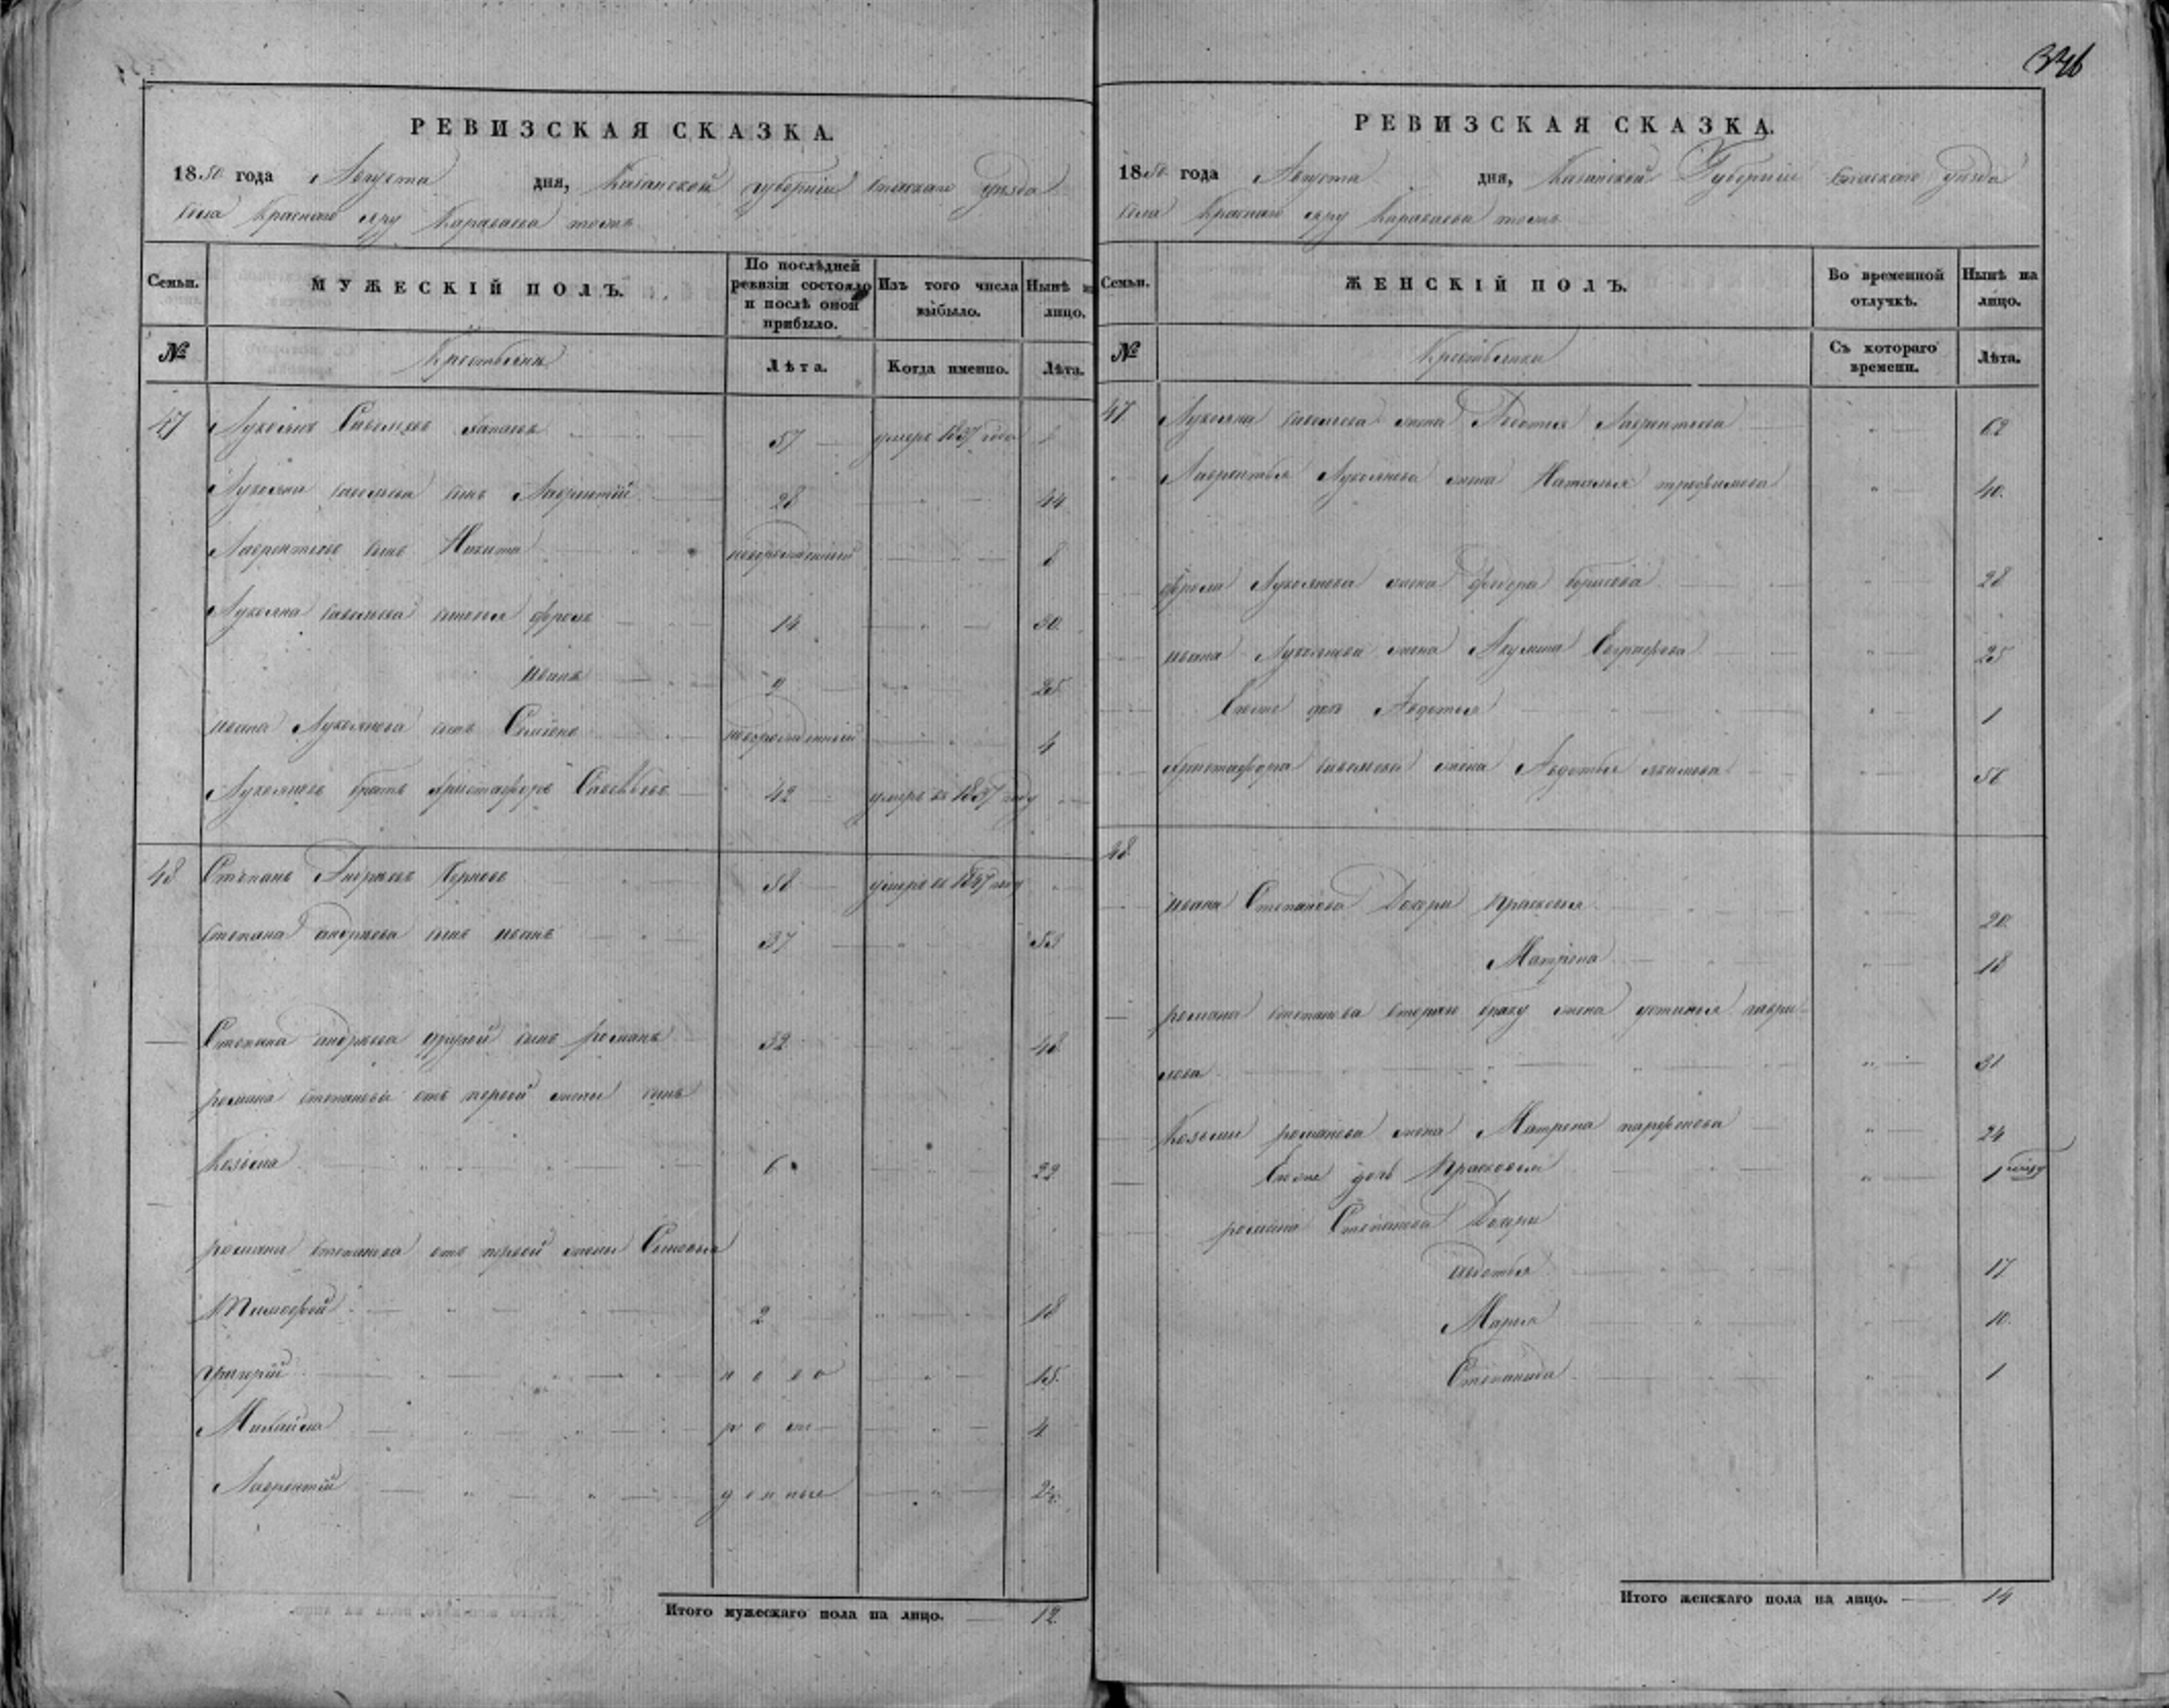 346
РЕВИЗСКАЯ СКАЗКА.
1850 года Августа дня, Казанской губернии Спаскаго уезда
села Краснаго яру Караваева тожъ
Семьи. МУЖЕСКІЙ ПОЛЪ. По послѣдней ревизіи состояло и послѣ оной прибыло. Изъ того числа выбыло. Нынѣ на лицо.
№ Крестьяне Лѣта. Когда именно. Лѣта.
47 Лукоянъ Савельевъ 57 умеръ 1837 года
Лукояна савельева сынъ Лаврентій 28 44
Лаврентьевъ сынъ Никита новорожденный 8
Лукояна савельева сыновья фролъ 14 30
иванъ 9 25
ивана Лукоянова сынъ Семіонъ новорожденный 4
Лукояновъ братъ христофоръ Савельевъ 42 умеръ въ 1837 году
48 Степанъ Андреевъ 58 умеръ въ 1847 году
степана андреева сынъ иванъ 37 53
Степана андреева другой сынъ романъ 32 48
романа степанова отъ первой жены сынъ
Козьма 6 22
романа степанова отъ первой жены Сыновья
Тимофей 2 18
григорій ново 15
Михайла рож 4
Лаврентій денные 2
Итого мужескаго пола на лицо. 12
РЕВИЗСКАЯ СКАЗКА.
1850 года Августа дня, Казанской Губерніи Спаскаго уезда
села Краснаго яру Караваева тожъ
Семьи. ЖЕНСКІЙ ПОЛЪ. Во временной отлучкѣ. Нынѣ на лицо.
№ Крестьянки Съ котораго времени. Лѣта.
47 Лукояна савельева жена Авдотья Лаврентьева 62
Лаврентья Лукоянова жена Наталья трофимова 40
фрола Лукоянова жена федора борисова 28
ивана Лукоянова жена Акулина Евграфова 25
Ево дочь Авдотья 1
христофора савельева жена Авдотья якимова 56
48
ивана Степанова Дочери прасковья 20
Матрена 18
романа степанова втораго браку жена устинья гаври
лова 31
Козьмы романова жена Матрена парфенова 24
Ево дочь прасковья 1
романа Степанова Дочери
авдотья 17
Марья 10
Степанида 1
Итого женскаго пола на лицо. 14